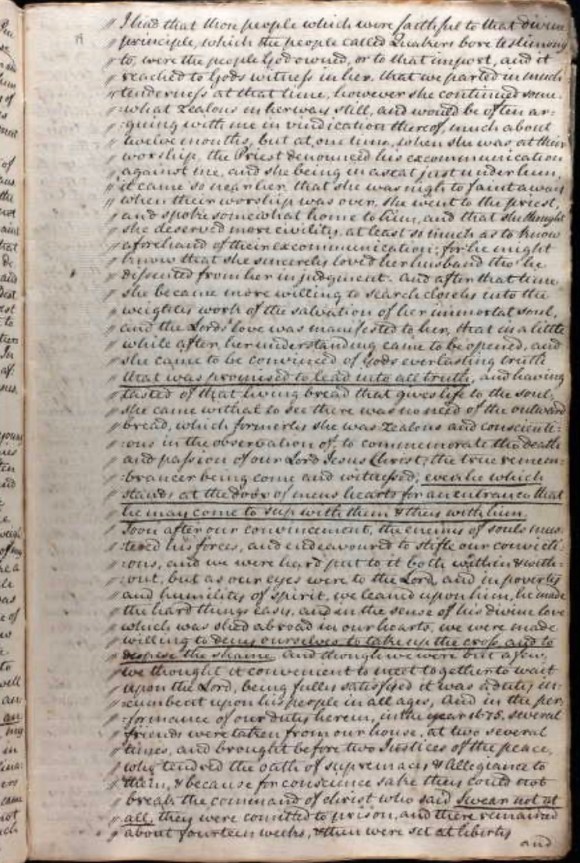 " I had that those people which were faithful to that divine
" principle, which the people called Quakers bore testimony
" to, were the people God owned, or to that import, and it
" reached to Gods witness in her, that we parted in much
" tenderness at that time, however she continued some:
" :what Zealous in her way still, and would be often ar:
" :guing with me in vindication thereof, much about
" twelve months, but at one time, when she was at their
" worship, the Priest denounced his excommunication
" against me, and she being in a seat just under him,
" it came so near her, that she was nigh to faint away
" when their worship was over, she went to the priest,
" and spoke somewhat home to him, and that she thought
" she deserved more civility, at least so much as to know
" aforehand of their excommunication; for he might
" know that she sincerely loved her husband tho' he
" dissented from her in judgment. And after that time
" she became more willing to search closely into the
" weighty work of the salvation of her immortal soul,
" and the Lords love was manifested to her, that in a little
" while after, her understanding came to be opened, and
" she came to be convinced of Gods everlasting truth
" that was promised to lead into all truth, and having
" tasted of that living bread that gives life to the soul,
" she came withal to see there was no need of the outward
" bread, which formerly she was Zealous and conscienti:
" :ous in the observation of to commemorate the death
" and passion of our Lord Jesus Christ; the true remem:
" :brancer being come and witnessed, even he which
" stands at the door of mens hearts for an entrance that
" he may come to sup with them & they with him.
" Soon after our convincement, the enemy of souls mus:
" :tered his forces, and endeavoured to stifle our convicti:
" :ons, and we were hard put to it both within & with:
" :out, but as our eyes were to the Lord, and in poverty
" and humility of spirit, we leaned upon him, he made
" the hard things easy, and in the sense of his divine love
" which was shed abroad in our hearts, we were made
" willing to deny ourselves, to take up the cross, and to
" despise the shame. And though we were but a few,
" we thought it convenient to meet together to wait
" upon the Lord, being fully satisfied it was a duty in:
" :cumbent upon his people in all ages, And in the per:
" :formance of our duty herein, in the year 1675, several
" friends were taken from our house, at two several
" times, and brought before two Justices of the peace,
" who tendred the oath of supremacy & allegiance to
" them, & because for conscience sake they could not
" break the command of Christ who said Swear not at
" all, they were comitted to prison, and there remained
" about fourteen weeks, & then were set at liberty
and